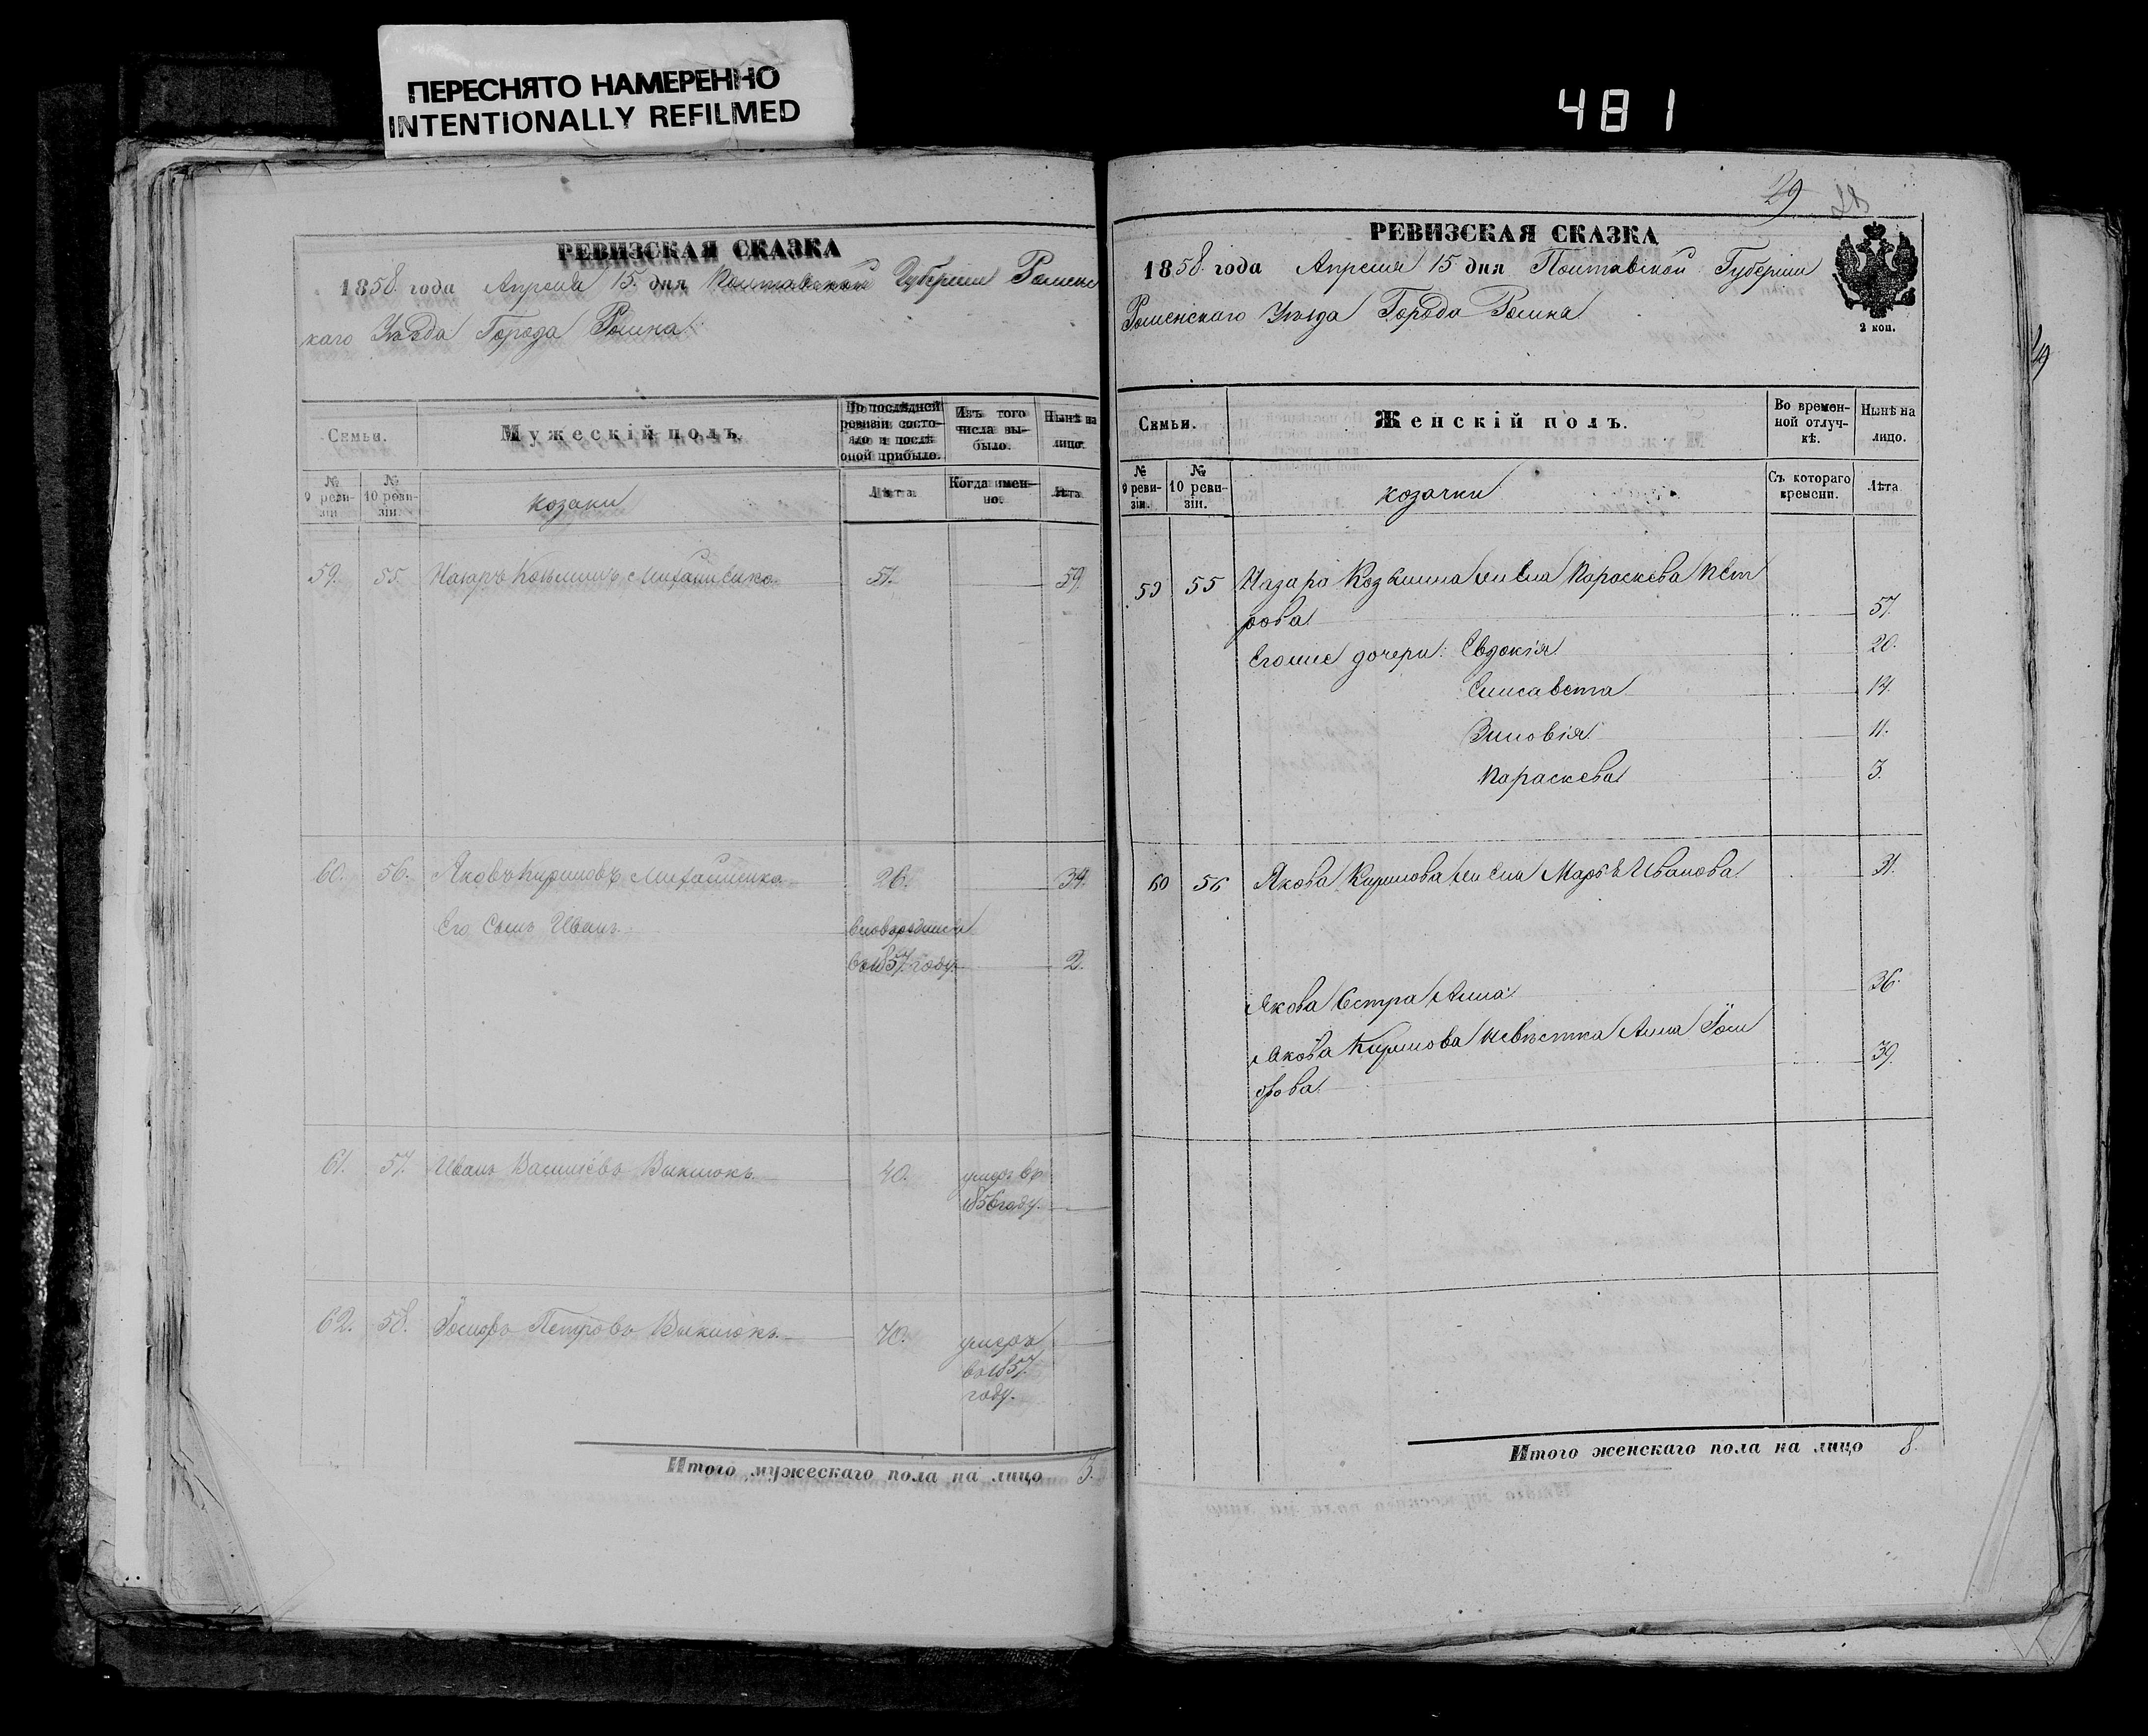 ПЕРЕСНЯТО НАМЕРЕННО
INTENTIONALLY REFILMED
481
РЕВИЗСКАЯ СКАЗКА
1858 года Апреля 15 дня Полтавской Губернии Роменс
каго Уѣзда Города Ромна
Семьи.
Мужескій полъ.
По послѣдней ревизіи состояло и послѣ оной прибыло.
Изъ того числа выбыло.
Нынѣ на лицо.
№ 9 ревизіи.
№ 10 ревизіи.
козаки
Лѣта.
Когда именно.
Лѣта
59. 55. Назаръ Козьминъ 51. 59.
60. 56. Яковъ Кириловъ 26. 34.
Его Сынъ Иванъ
въ 1857 году. 2.
61. 57. Иванъ Васильевъ 40. умеръ въ
1856 году.
62. 58. Іосифъ Петровъ 40. умеръ
въ 1857
году.
Итого мужескаго пола на лицо 3.
29
РЕВИЗСКАЯ СКАЗКА
1858 года Апреля 15 дня Полтавской Губерніи
Роменскаго Уѣзда Города Ромна
2 коп.
Семьи.
Женскій полъ.
Во временной отлучкѣ.
Нынѣ на лицо.
№ 9 ревизіи.
№ 10 ревизіи.
козачки
Съ котораго времени.
Лѣта
59 55 Назара Козьмина жена Параскева Пет
рова 57.
Егоже дочери: Евдокія 20.
Елисавета 14.
Зиновія 11.
Параскева 3.
60 56 Якова Кирилова жена Марья Иванова 31.
Якова Сестра Анна 36.
Якова Кирилова Невѣстка Анна Іоси
фова 39.
Итого женскаго пола на лицо 8.
29